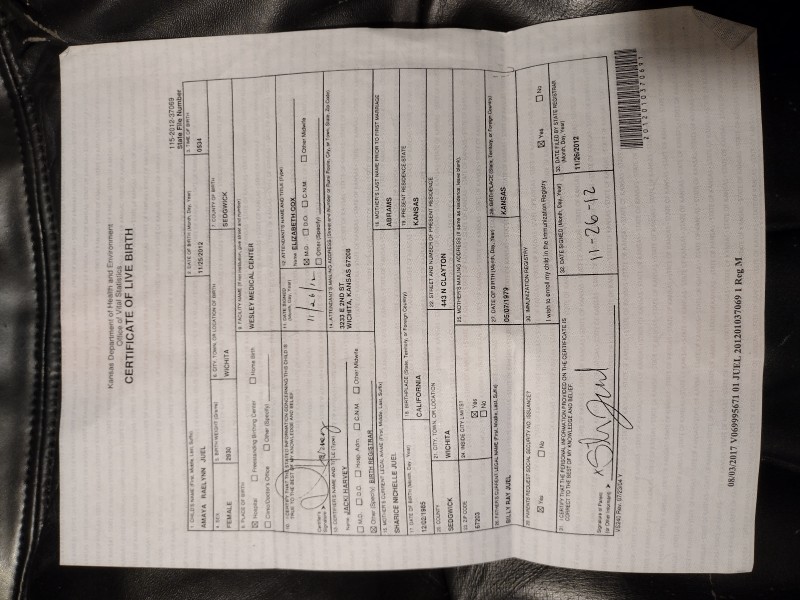 115-2012-37069
State File Number
Kansas Department of Health and Environment
Office of Vital Statistics
CERTIFICATE OF LIVE BIRTH
1. CHILD'S NAME (First, Middle, Last, Suffix)
AMAYA RAELYNN JUEL
2. DATE OF BIRTH (Month, Day, Year)
11/25/2012
3. TIME OF BIRTH
0634
4. SEX
FEMALE
5. BIRTH WEIGHT (Grams)
2930
6. CITY, TOWN, OR LOCATION OF BIRTH
WICHITA
7. COUNTY OF BIRTH
SEDGWICK
8. PLACE OF BIRTH
Hospital
Freestanding Birthing Center
Home Birth
Clinic/Doctor's Office
Other (Specify)
9. FACILITY NAME (If not institution, give street and number)
WESLEY MEDICAL CENTER
10. I CERTIFY THAT THE STATED INFORMATION CONCERNING THIS CHILD IS
TRUE TO THE BEST OF MY KNOWLEDGE AND BELIEF.
Certifier's
Signature
11. DATE SIGNED
(Month, Day, Year)
11/26/12
12. ATTENDANT'S NAME AND TITLE (Type)
Name ELIZABETH COX
M.D. D.O. C.N.M. Other Midwife
Other (Specify)
13. CERTIFIER'S NAME AND TITLE (Type)
Name JACKI HARVEY
M.D. D.O. Hosp. Adm. C.N.M. Other Midwife
Other (Specify) BIRTH REGISTRAR
14. ATTENDANT'S MAILING ADDRESS (Street and Number or Rural Route Number, City, or Town, State, Zip Code)
3233 E 2ND ST
WICHITA, KANSAS 67208
15. MOTHER'S CURRENT LEGAL NAME (First, Middle, Last, Suffix)
SHARICE MICHELLE JUEL
16. MOTHER'S LAST NAME PRIOR TO FIRST MARRIAGE
ABRAMS
17. DATE OF BIRTH (Month, Day, Year)
12/02/1985
18. BIRTHPLACE (State, Territory, or Foreign Country)
CALIFORNIA
19. PRESENT RESIDENCE-STATE
KANSAS
20. COUNTY
SEDGWICK
21. CITY, TOWN, OR LOCATION
WICHITA
22. STREET AND NUMBER OF PRESENT RESIDENCE
443 N CLAYTON
23. ZIP CODE
67203
24. INSIDE CITY LIMITS?
Yes
No
25. MOTHER'S MAILING ADDRESS (If same as residence, leave blank)
26. FATHER'S CURRENT LEGAL NAME (First, Middle, Last, Suffix)
BILLY RAY JUEL
27. DATE OF BIRTH (Month, Day, Year)
05/07/1979
28. BIRTHPLACE (State, Territory, or Foreign Country)
KANSAS
29. PARENT REQUEST SOCIAL SECURITY NO. ISSUANCE?
Yes No
30. IMMUNIZATION REGISTRY
I wish to enroll my child in the Immunization Registry
Yes No
31. I CERTIFY THAT THE PERSONAL INFORMATION PROVIDED ON THIS CERTIFICATE IS
CORRECT TO THE BEST OF MY KNOWLEDGE AND BELIEF.
Signature of Parent
(or Other Informant)
32. DATE SIGNED (Month, Day, Year)
11-26-12
33. DATE FILED BY STATE REGISTRAR
(Month, Day, Year)
11/26/2012
VS240 Rev.
08/03/2017 V069995671 01 JUEL 201201037069 1 Reg M